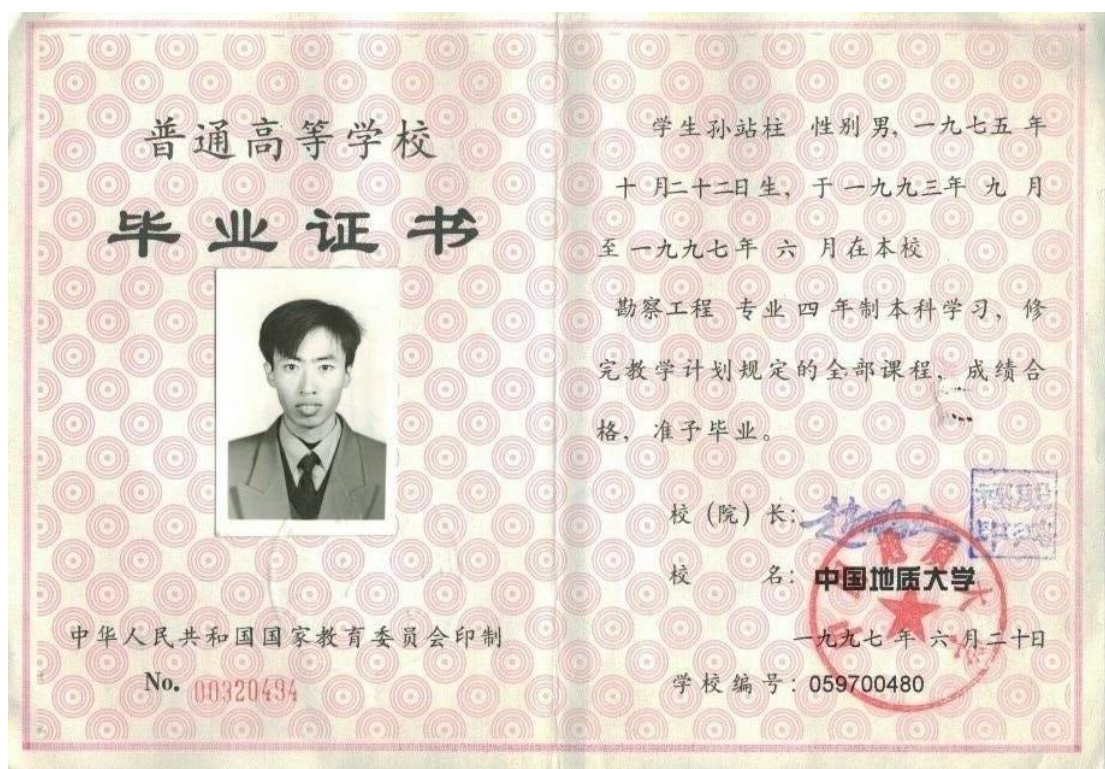 普通高等学校
毕业证书
中华人民共和国国家教育委员会印制
No. 00320494
学生孙站柱 性别男，一九七五年
十月二十二日生，于一九九三年 九 月
至一九九七年 六 月在本校
勘察工程 专业 四 年制本科学习，修
完教学计划规定的全部课程，成绩合
格，准予毕业。
校（院）长：
校 名：中国地质大学
一九九七年 六 月二十日
学校编号：059700480